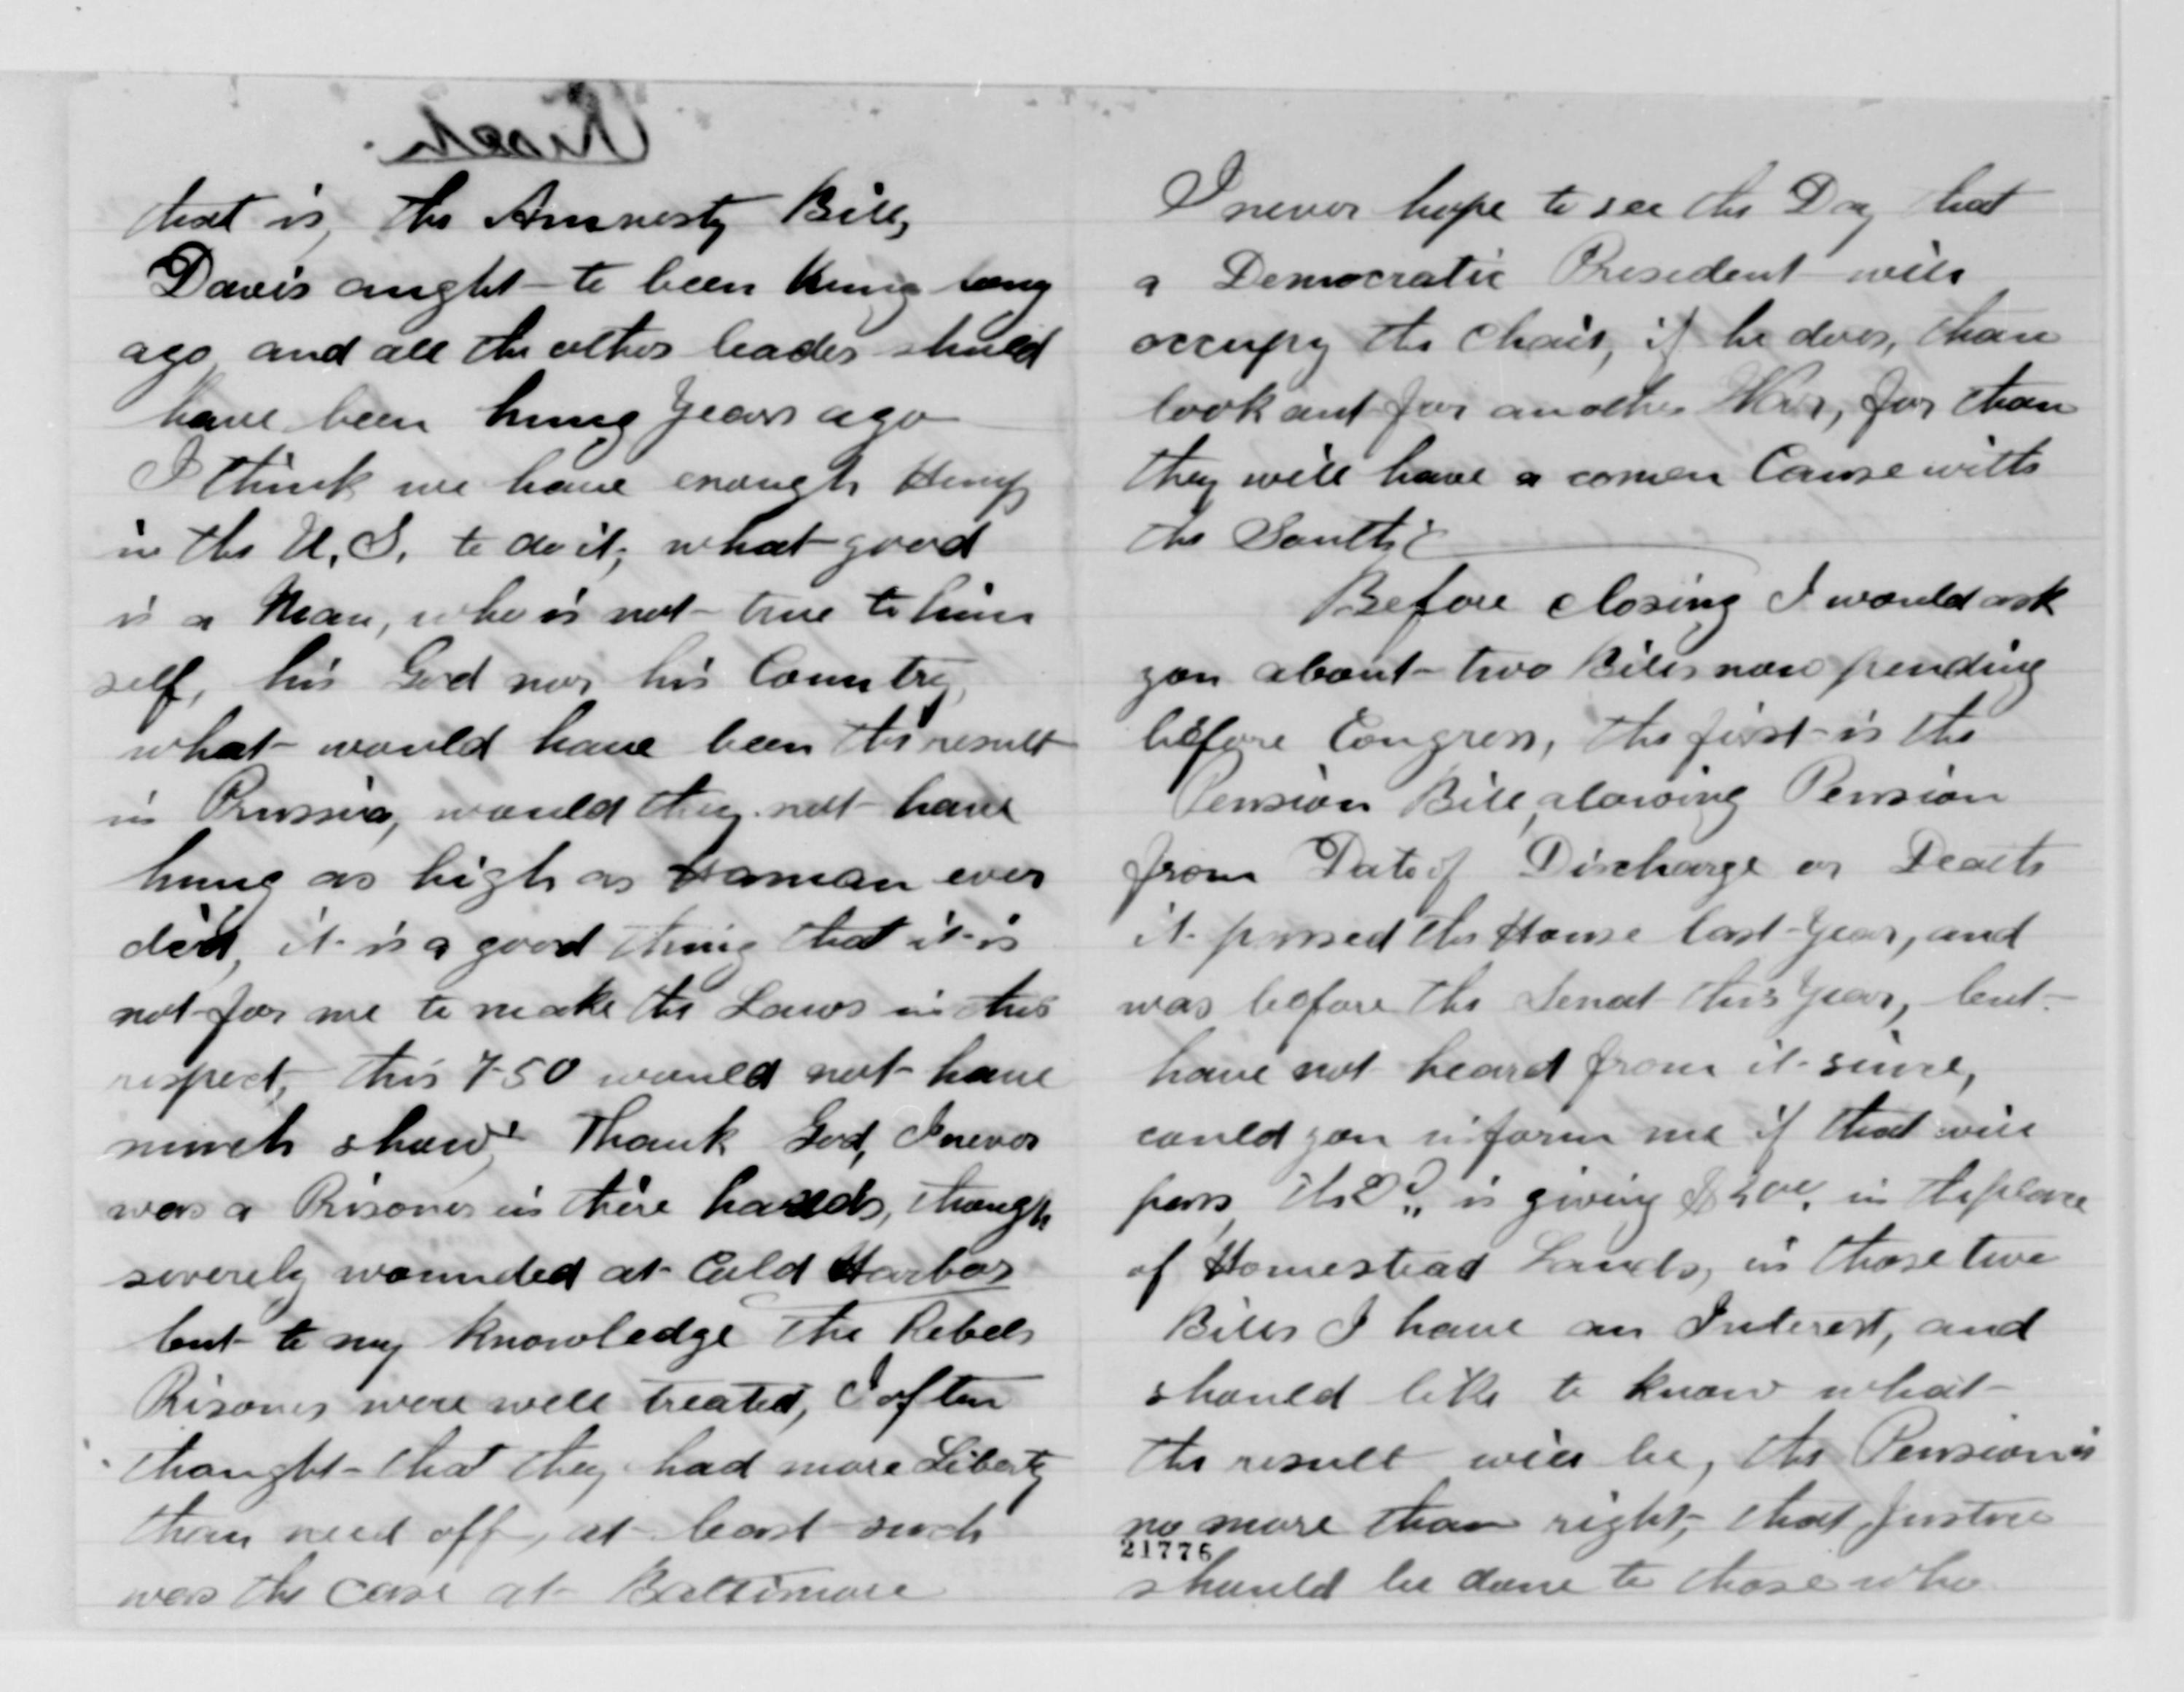 that is, the Amnesty Bill,
Davis aught to been hung long
ago and all the other leades shuld
have been hung Years ago
I think we have enough Hemp
in the U.S. to do it, what good
is a Man, who is not true to him
self, his God nor his Country,
what would have been the result
in Prussia, would they not have
hung as high as Haman ever
did, it is a good thing that it is
not for me to make the Laws in this
respect, this 750 would not have
much show. Thank God, I never
was a Prisoner in there hands, though
severely wounded at Cold Harbor
but to my knowledge the Rebels
Prisoners were well treated, I often
thought that they had more Liberty
than need off, at least such
was the case at Baltimore
I never hope to see the Day that
a Democratic President will
occupy the chair, if he does, than
look out for another War, for than
they will have a comon Cause with
the South.
Before closing I would ask
you about two Bills now pending
before Congress, the first is the
Pension Bill, alowing Pension
from Date of Discharge or Death
it passed the House last Year, and
was before the Senat this Year, but
have not heard from it since,
could you inform me if that will
pass, the 2d is giving $200. in the place
of Homestead Lands, in those two
Bills I have an Interest, and
should like to know what
the result will be, the Pension is
no more than right, that Justice
21776
should be done to those who